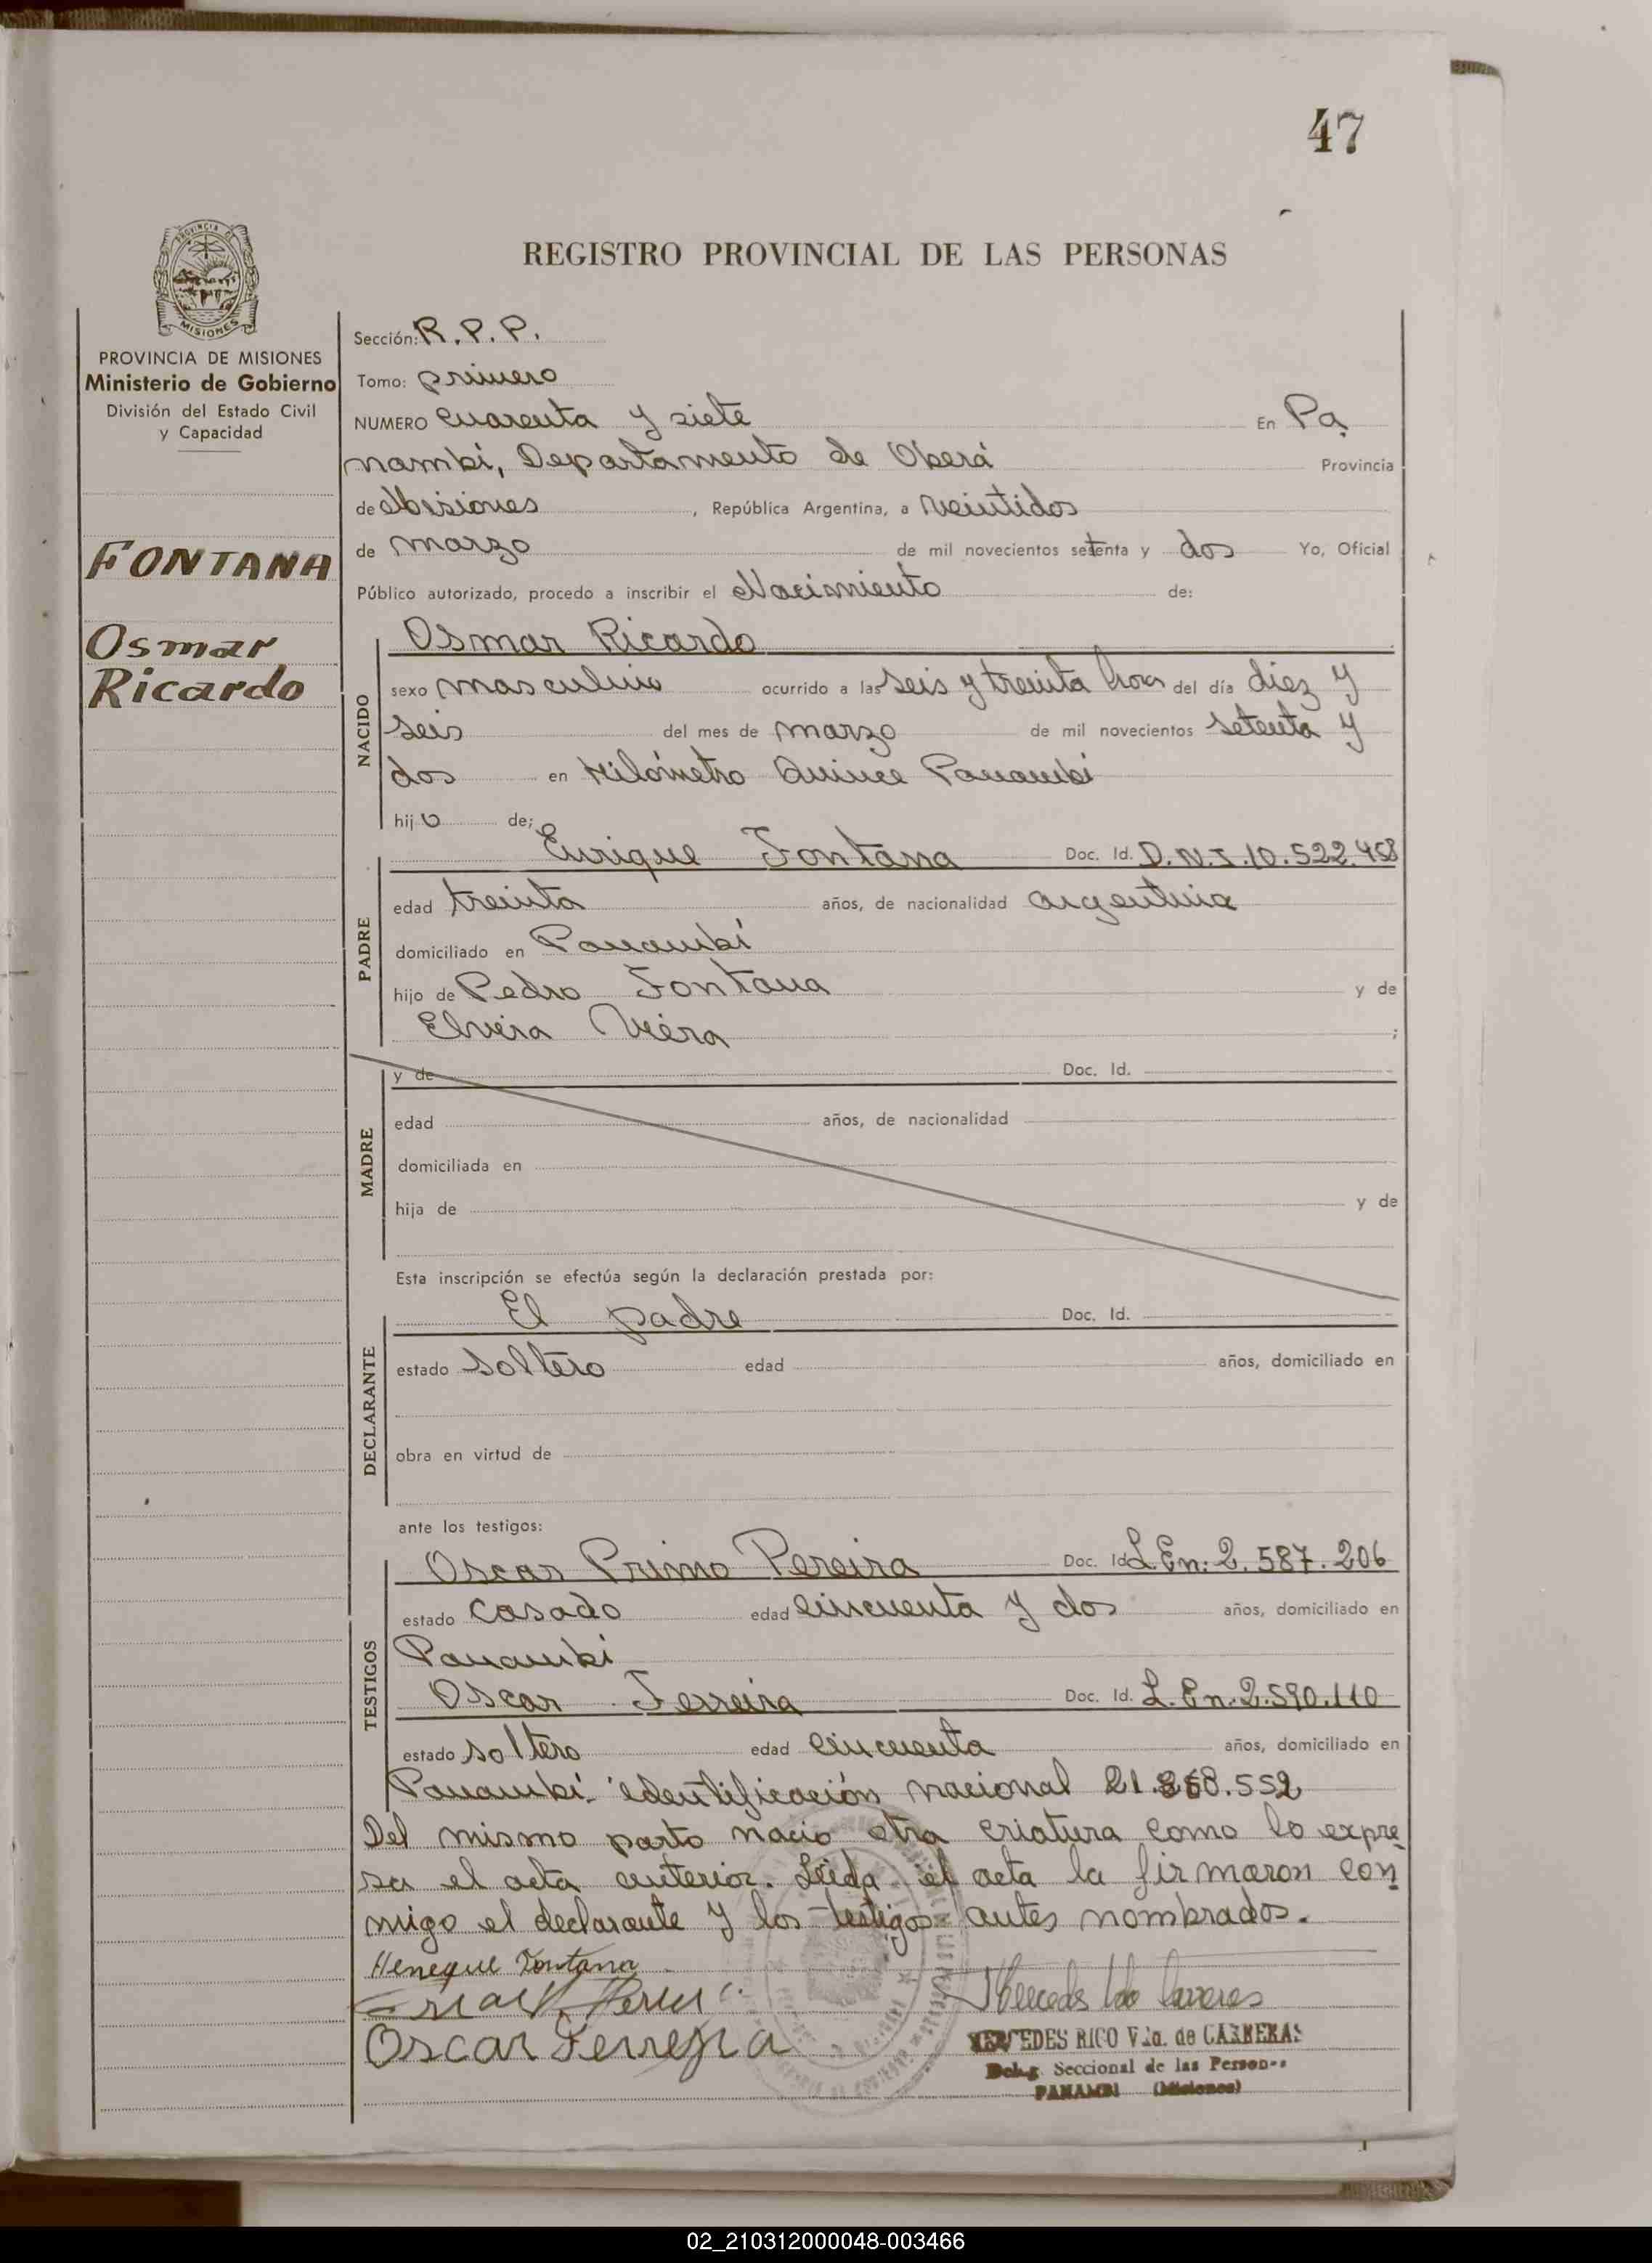 47
REGISTRO PROVINCIAL DE LAS PERSONAS
PROVINCIA DE
MISIONES
PROVINCIA DE MISIONES
Ministerio de Gobierno
División del Estado Civil
y Capacidad
FONTANA
Osmar
Ricardo
Sección: R. P. P.
Tomo: primero
NUMERO cuarenta y siete En Pa
nambí, Departamento de Oberá Provincia
de Misiones, República Argentina, a veintidos
de marzo de mil novecientos setenta y dos Yo, Oficial
Público autorizado, procedo a inscribir el Nacimiento de:
NACIDO
Osmar Ricardo
sexo masculino ocurrido a las seis y treinta horas del día diez y
seis del mes de marzo de mil novecientos setenta y
dos en Kilómetro Quince Panambí
hijo de;
PADRE
Enrique Fontana Doc. Id. D.N.I. 10.522.458
edad treinta años, de nacionalidad argentina
domiciliado en Panambí
hijo de Pedro Fontana y de
Elvira Viéra ;
MADRE
y de Doc. Id.
edad años, de nacionalidad
domiciliada en
hija de y de
Esta inscripción se efectúa según la declaración prestada por:
DECLARANTE
El padre Doc. Id.
estado soltero edad años, domiciliado en
obra en virtud de
ante los testigos:
TESTIGOS
Oscar Primo Pereira Doc. Id L.En: 2.587.206
estado casado edad cincuenta y dos años, domiciliado en
Panambí
Oscar Ferreira Doc. Id. L. En. 2.590.110
estado soltero edad cincuenta años, domiciliado en
Panambí. identificación nacional 21.868.552
Del mismo parto nació otra criatura como lo expre
sa el acta anterior. Leida el acta la firmaron con
migo el declarante y los testigos antes nombrados.
Heneque Fontana
Oscar Ferreira
MERCEDES RICO Vda. de CARRERAS
Deleg. Seccional de las Personas
PANAMBI (Misiones)
02_210312000048-003466